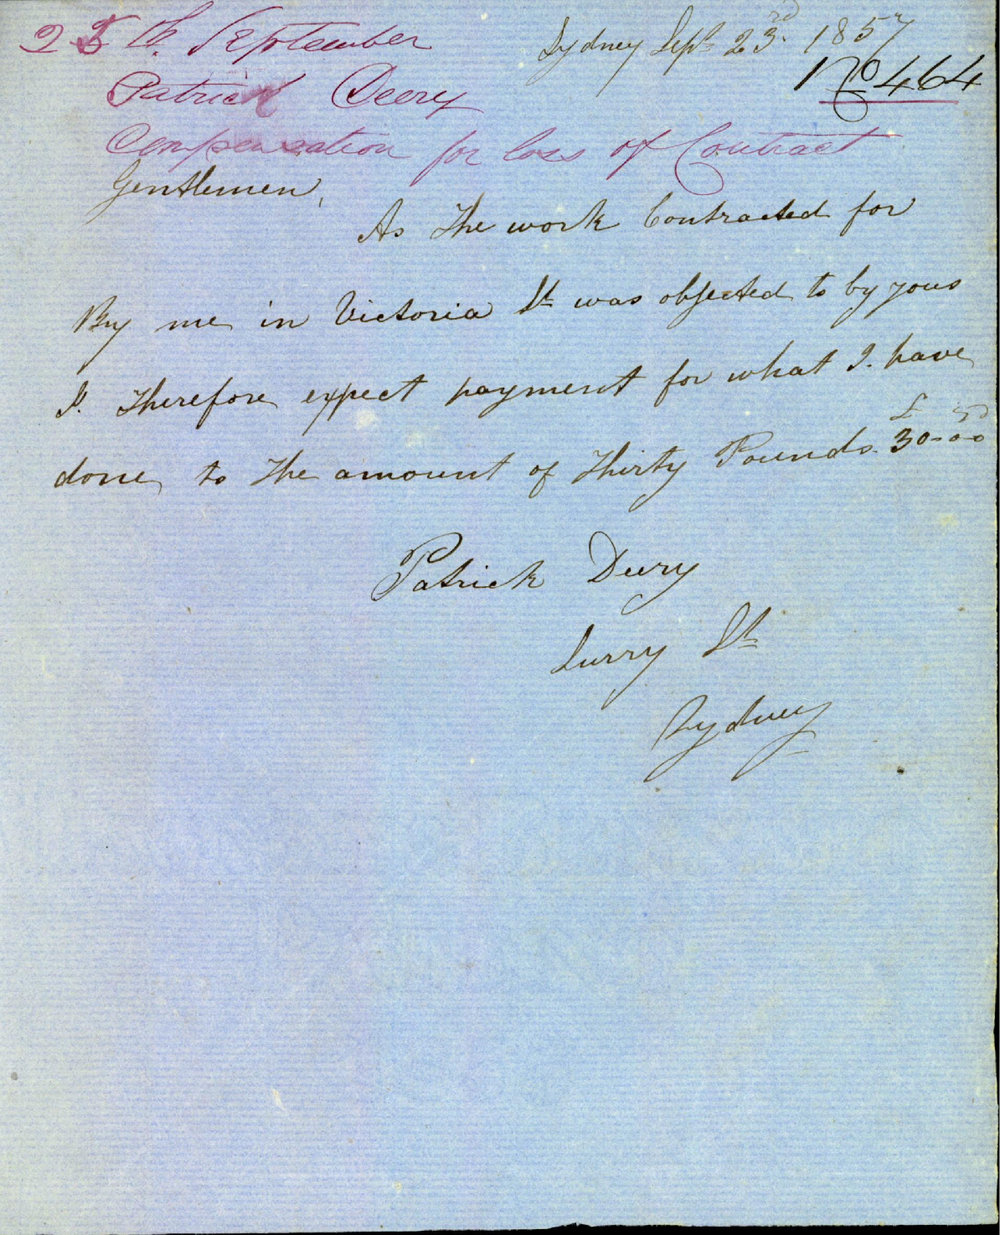 25th September
Sydney Sept 23rd 1857
No 464
Patrick Deery
Compensation for loss of Contract
Gentlemen,
As the work Contracted for
By me in Victoria St was objected to by yous
I. therefore expect payment for what I. have
done to the amount of thirty Pounds. £30-0-0
Patrick Deery
Surry St
Sydney